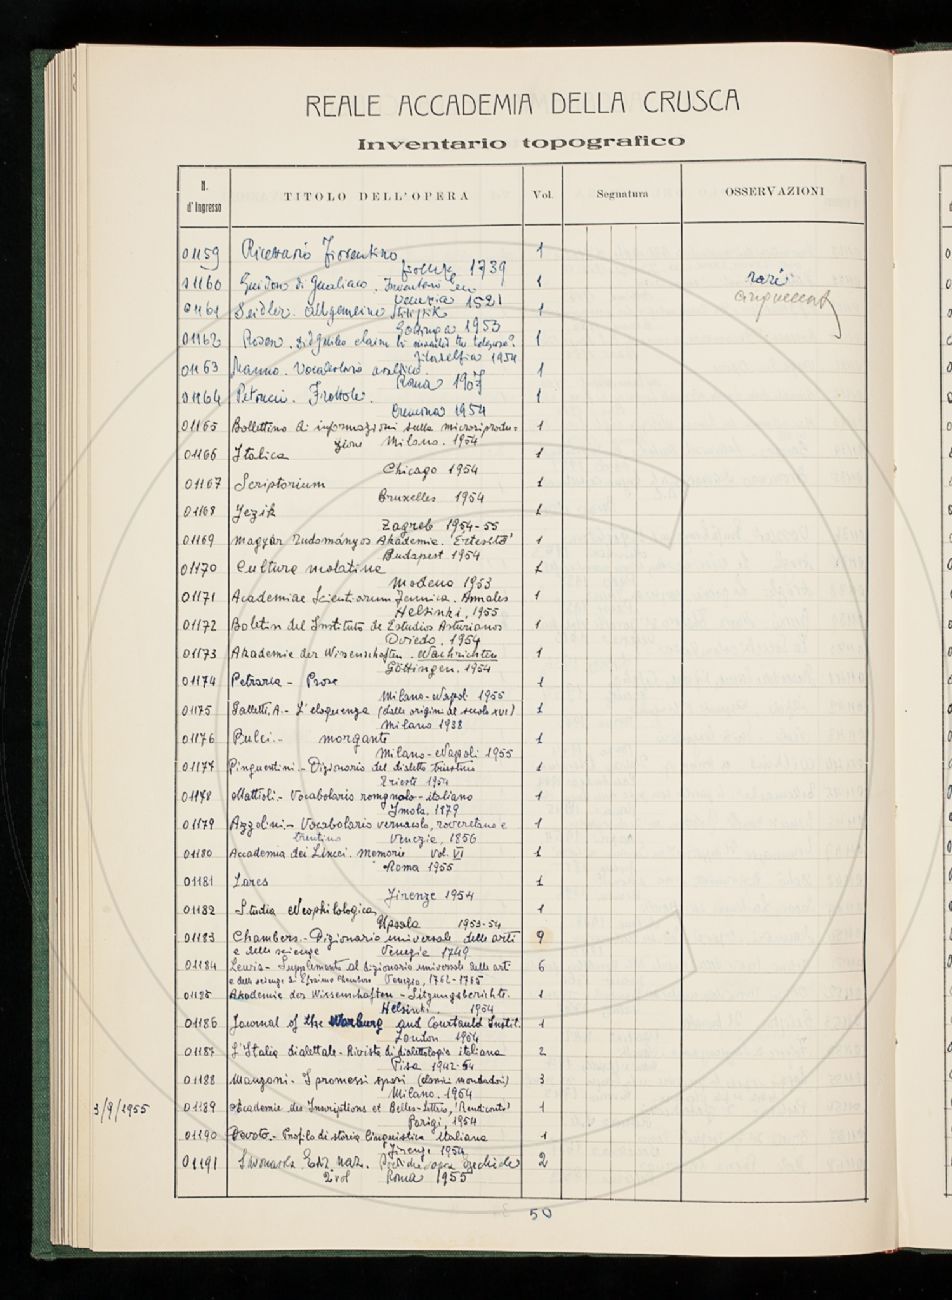 REALE ACCADEMIA DELLA CRUSCA
Inventario topografico
N. d'Ingresso TITOLO DELL'OPERA Vol. Segnatura OSSERVAZIONI
01159 Ricettario Fiorentino 1
Firenze 1739
01160 Guidon di 1 rari
Venezia 1521 cinquecent
01161 Seidler. Allgemeine Stilistik 1
Gottinga 1953
01162 Rosen. Did Galileo claim 1
Filadelfia 1954
01163 Nanno. Vocabolario 1
Roma 1907
01164 Petrucci. Frottole. 1
Cremona 1954
01165 Bollettino di informazioni sulla microriprodu= 1
zione Milano. 1954
01166 Italica 1
Chicago 1954
01167 Scriptorium 1
Bruxelles 1954
01168 Jezik 1
Zagreb 1954-55
01169 Magyar Tudományos Akadémia. 1
Budapest 1954
01170 Cultura neolatina 1
Modena 1953
01171 Academiae Scientiarum Fennica. Annales 1
Helsinki, 1955
01172 Boletin del Instituto de Estudios Asturianos 1
Oviedo. 1954
01173 Akademie der Wissenschaften. Nachrichten 1
Göttingen. 1954
01174 Petrarca - Prose 1
Milano-Napoli 1955
01175 Galletti. A. - L'eloquenza (dalle origini al secolo XVI) 1
Milano 1938
01176 Pulci. - Morgante 1
Milano-Napoli 1955
01177 Pinguentini. - Dizionario del dialetto triestino 1
Trieste 1954
01178 Mattioli. - Vocabolario romagnolo-italiano 1
Imola. 1879
01179 Azzolini. - Vocabolario vernacolo, roveretano e 1
trentino Venezia, 1856
01180 Accademia dei Lincei. Memorie Vol. VI 1
Roma 1955
01181 Lares 1
Firenze 1954
01182 Studia Neophilologica 1
Upsala 1953-54
01183 Chambers. - Dizionario universale delle arti 9
e delle scienze Venezia 1749
01184 Lewis - Supplemento al dizionario universale delle arti 6
e delle scienze di Efraimo Chambers Venezia, 1762-1765
01185 Akademie der Wissenschaften - Sitzungsberichte. 1
Helsinki. 1954
01186 Journal of the Warburg and Courtauld Instit. 1
London 1954
01187 L'Italia dialettale - Rivista di dialettologia italiana 2
Pisa 1942-54
01188 Manzoni. I promessi sposi (classici mondadori) 3
Milano. 1954
3/9/1955 01189 Academie des Inscriptions et Belles-Lettres, 1
Parigi, 1954
01190 Devoto - Profilo di storia linguistica Italiana 1
Firenze 1954
01191 Savonarola Ediz. naz. Prediche sopra Ezechiele 2
2 vol Roma 1955
50